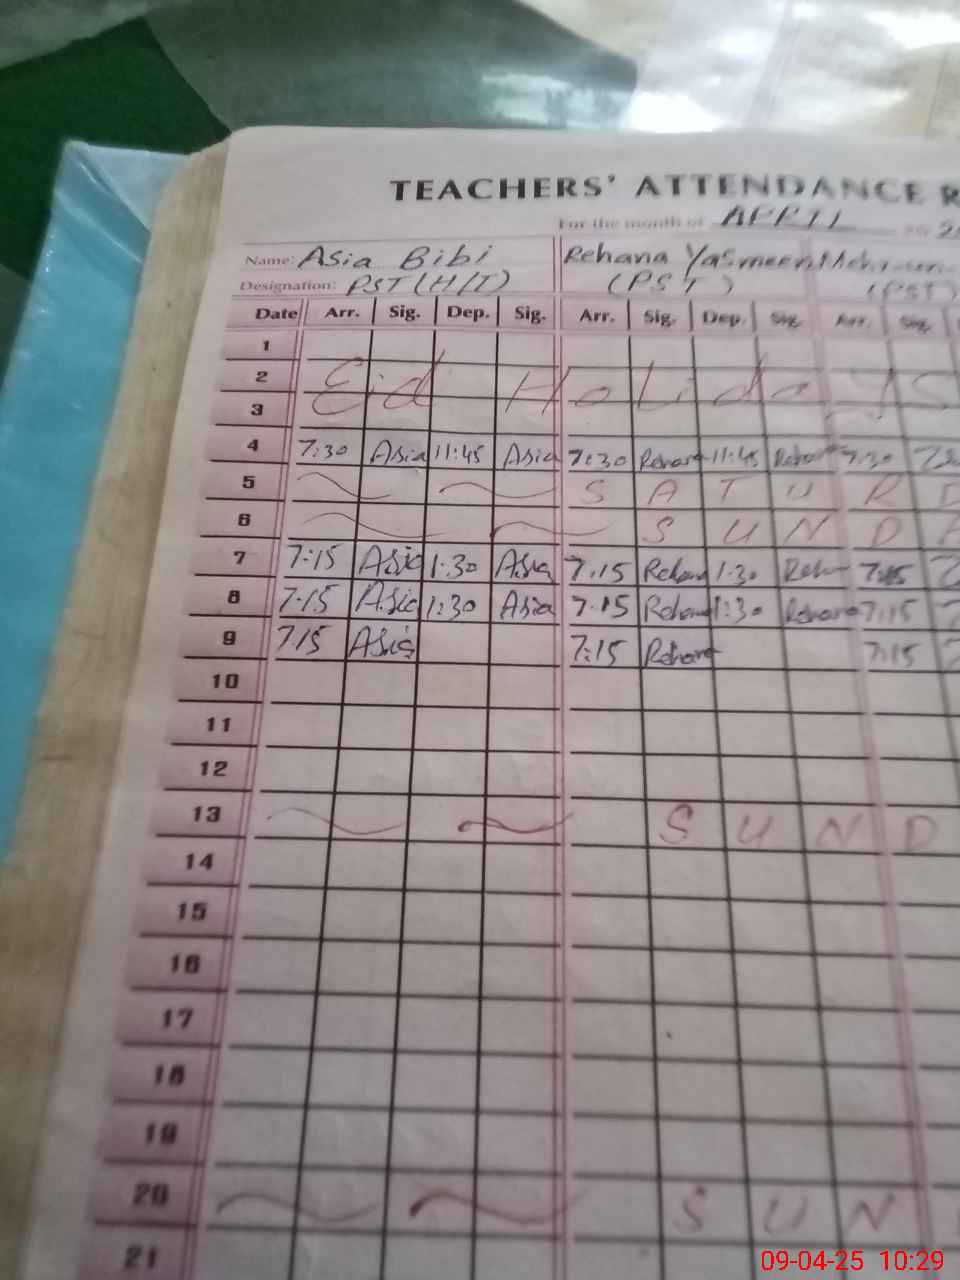 TEACHERS' ATTENDANCE R
For the month of APRIL 20 2
Name: Asia Bibi Rehana Yasmeen
Designation: PST (H/T) (PST) (PST)
Date Arr. Sig. Dep. Sig. Arr. Sig. Dep. Sig. Arr. Sig.
1
2 Eid Holidays
3
4 7:30 Asia 11:45 Asia 7:30 Rehana 11:45 Rehana 7:30
5 S A T U R D
6 S U N D A
7 7:15 Asia 1:30 Asia 7:15 Rehana 1:30 Rehana 7:15
8 7:15 Asia 1:30 Asia 7:15 Rehana 1:30 Rehana 7:15
9 7:15 Asia 7:15 Rehana 7:15
10
11
12
13 S U N D
14
15
16
17
18
19
20 S U N
21
09-04-25 10:29